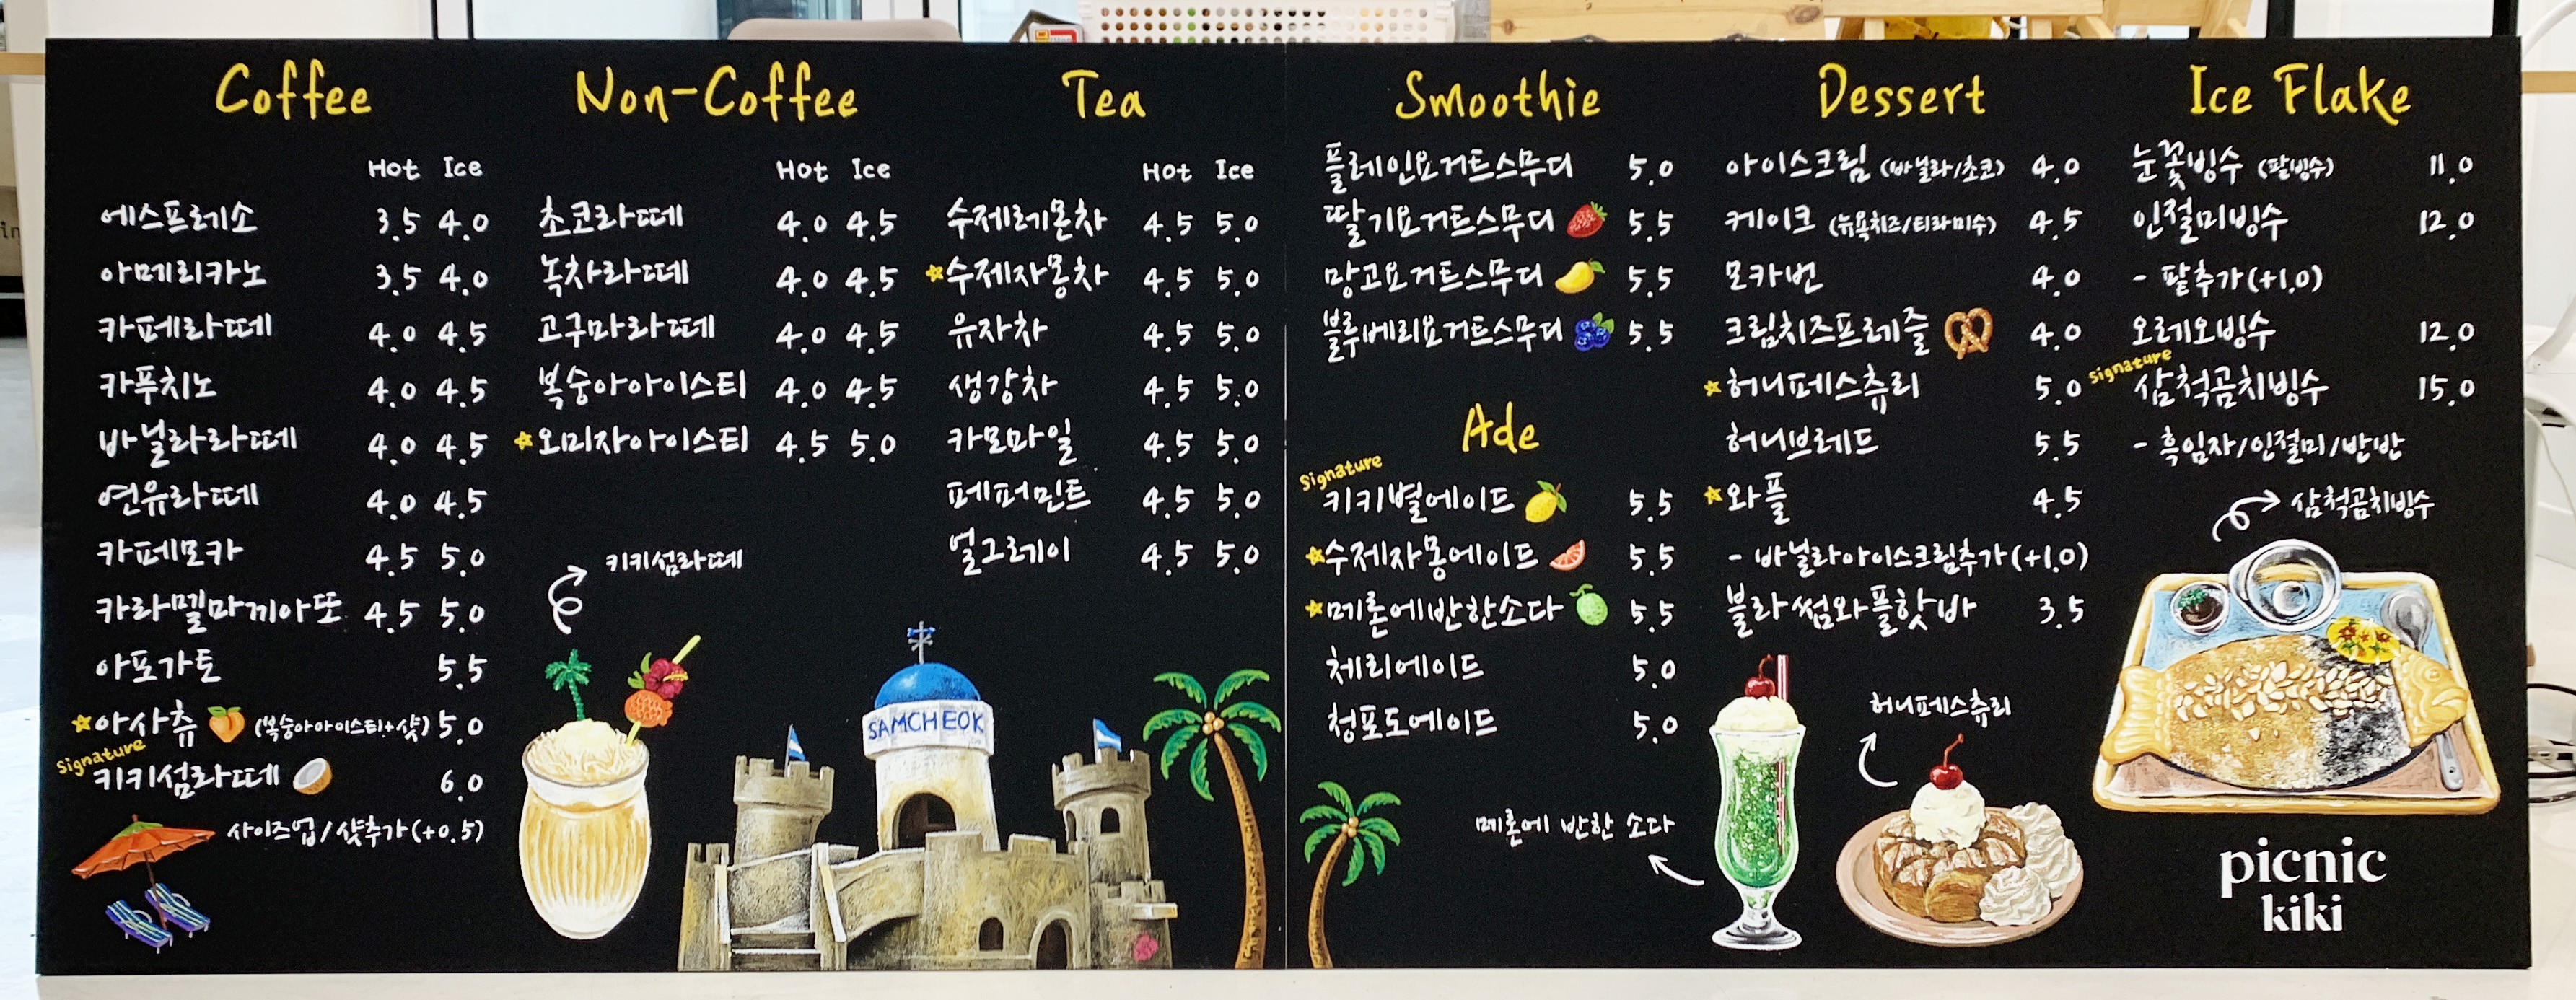 Coffee
Hot Ice
에스프레소 3.5 4.0
아메리카노 3.5 4.0
카페라떼 4.0 4.5
카푸치노 4.0 4.5
바닐라라떼 4.0 4.5
연유라떼 4.0 4.5
카페모카 4.5 5.0
카라멜마끼아또 4.5 5.0
아포가토 5.5
아사츄 (복숭아아이스티+샷) 5.0
Signature
키키섬라떼 6.0
사이즈업/샷추가(+0.5)
Non-Coffee
Hot Ice
초코라떼 4.0 4.5
녹차라떼 4.0 4.5
고구마라떼 4.0 4.5
복숭아아이스티 4.0 4.5
오미자아이스티 4.5 5.0
키키섬라떼
Tea
Hot Ice
수제레몬차 4.5 5.0
수제자몽차 4.5 5.0
유자차 4.5 5.0
생강차 4.5 5.0
카모마일 4.5 5.0
페퍼민트 4.5 5.0
얼그레이 4.5 5.0
SAMCHEOK
Smoothie
플레인요거트스무디 5.0
딸기요거트스무디 5.5
망고요거트스무디 5.5
블루베리요거트스무디 5.5
Ade
Signature
키키별에이드 5.5
수제자몽에이드 5.5
메론에반한소다 5.5
체리에이드 5.0
청포도에이드 5.0
메론에 반한 소다
Dessert
아이스크림 (바닐라/초코) 4.0
케이크 (뉴욕치즈/티라미수) 4.5
모카번 4.0
크림치즈프레즐 4.0
허니페스츄리 5.0
허니브레드 5.5
와플 4.5
- 바닐라아이스크림추가(+1.0)
블라썸와플핫바 3.5
허니페스츄리
Ice Flake
눈꽃빙수 (팥빙수) 11.0
인절미빙수 12.0
- 팥추가(+1.0)
오레오빙수 12.0
Signature
삼척곰치빙수 15.0
- 흑임자/인절미/반반
삼척곰치빙수
picnic
kiki